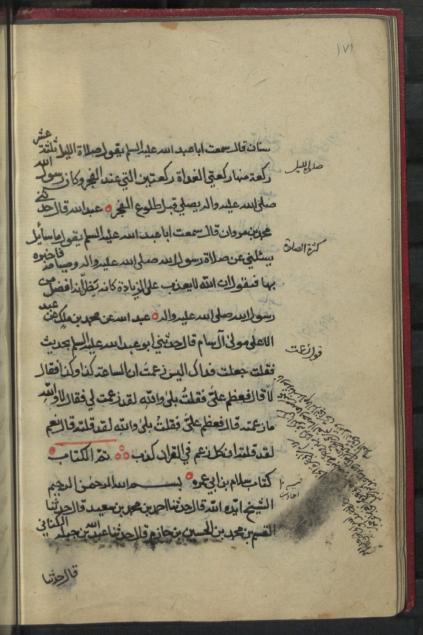 ١٧١
سنان قال سمعت ابا عبد الله عليه السلم يقول صلاة الليل ثلثة عشر
ركعة منها ركعتي الغداة ركعتين التي عند الفجر وكان رسول الله
صلى الله عليه واله يصلي قبل طلوع الفجر عبد الله قال حدثني
محمد بن مروان قال سمعت ابا عبد الله عليه السلم يقول ايما سايل
يسئلني عن صلاة رسول الله صلى الله عليه واله وصيامه فاخبره
بها فيقول ان الله لا يعذب على الزيادة كانه يظن انه افضل من
رسول الله صلى الله عليه واله عبد الله عن محمد بن ملك عن عبد
الاعلى مولى آل سام قال حدثني ابو عبد الله عليه السلم بحديث
فقلت جعلت فداك اليس زعمت ان الساعة كذا وكذا فقال
لا قال فعظم علي فقلت بلى والله لقد زعمت لي فقال لا والله
ما زعمته قال فعظم علي فقلت بلى والله لقد قلته قال نعم
لقد قلته ان كل زعم في القران كذب تم الكتاب
كتاب سلام بن ابي عمره بسم الله الرحمن الرحيم
الشيخ ايده الله قال حدثنا احمد بن محمد بن سعيد قال حدثنا
القسم بن محمد بن الحسين بن حازم قال حدثنا عبد الله بن جبلة الكناني
قال حدثنا
صلاة الليل
كثرة الصلاة
قول زعمت